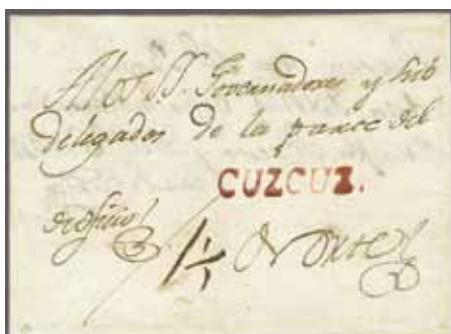 A los SS. Governadores y Sub
delegados de la parte del
CUZCUZ.
de oficio
Norte